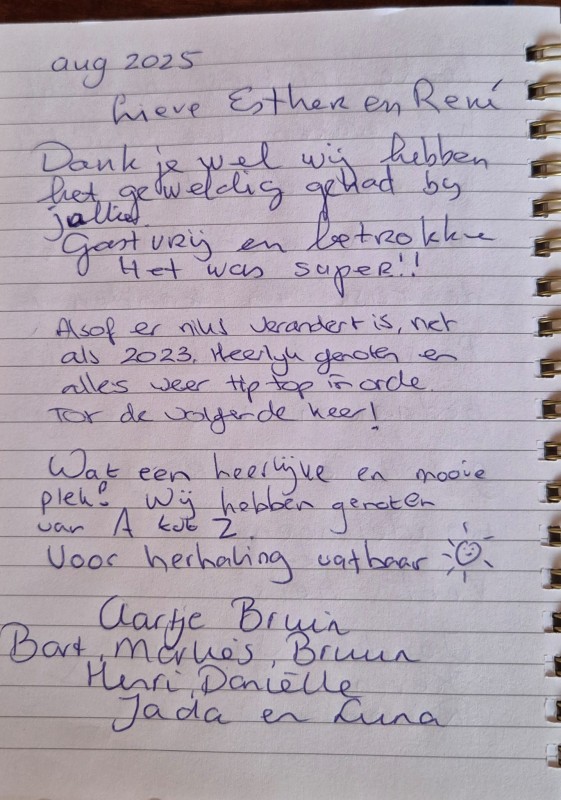 aug 2025
Lieve Esther en René
Dank je wel wij hebben
het geweldig gehad by
jullie.
Gastvrij en betrokke
Het was super!!
Alsof er niks verandert is, net
als 2023. Heerlijk genoten en
alles weer tip top in orde.
Tot de volgende keer!
Wat een heerlijke en mooie
plek! Wij hebben genoten
van A tot Z.
Voor herhaling vatbaar
Aartje Bruin
Bart, Bruin
Henri, Daniëlle
Jada en Luna